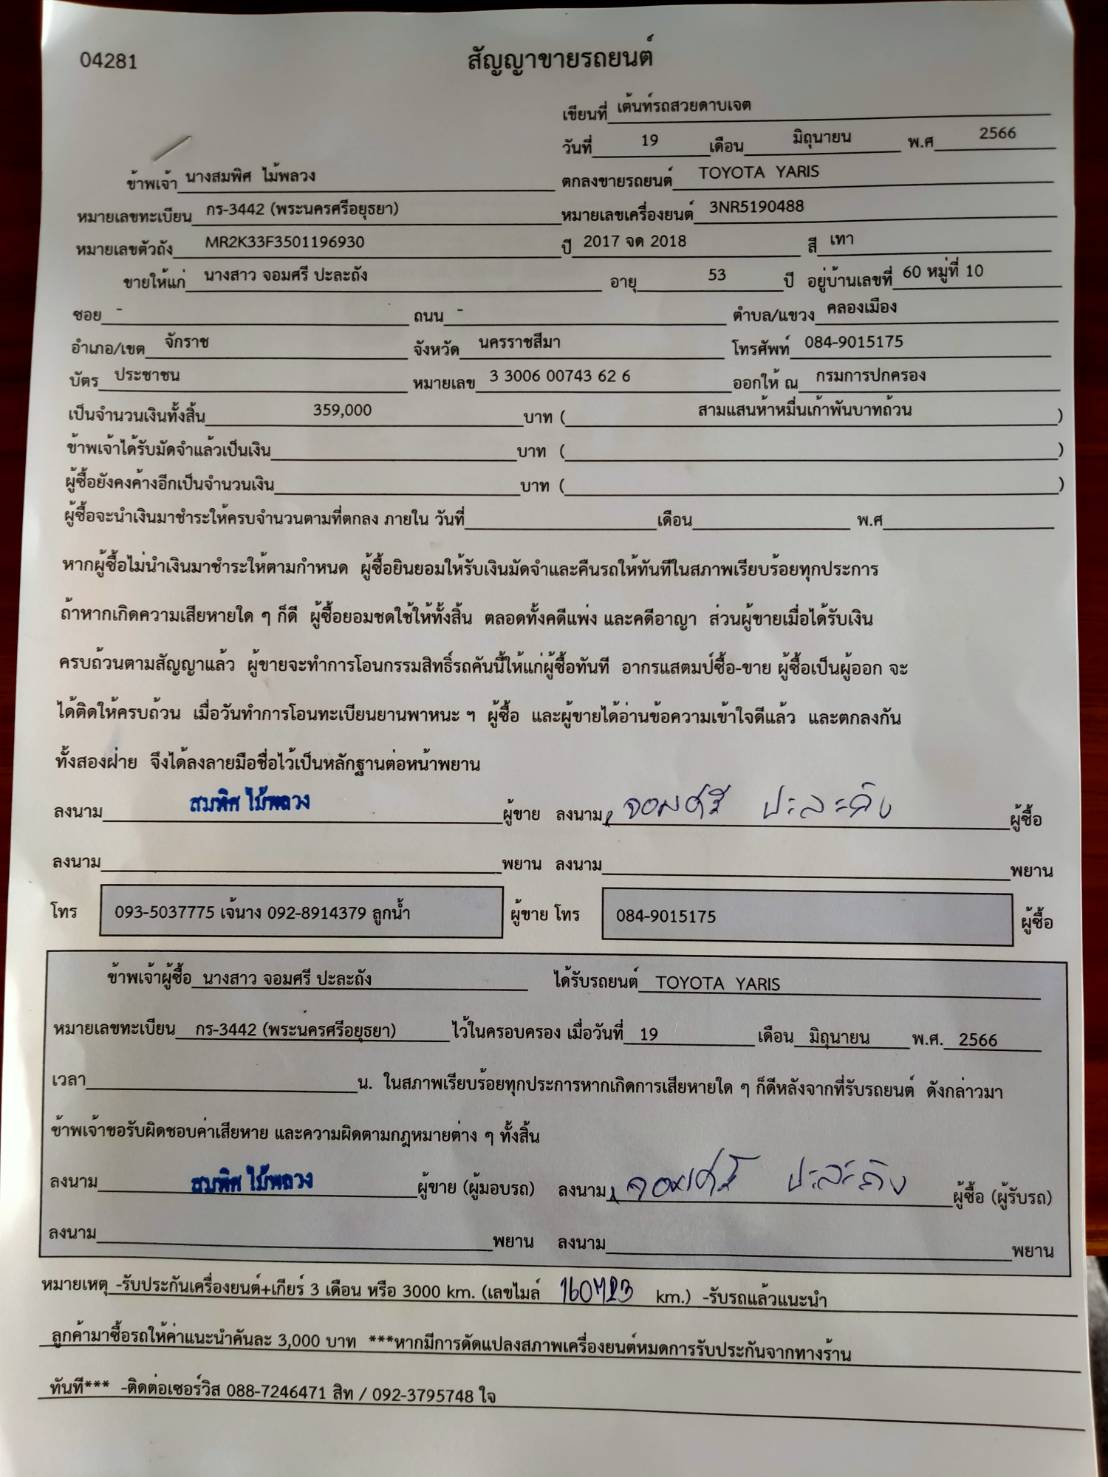 04281
สัญญาขายรถยนต์
เขียนที่ เต้นท์รถสวยดาบเจต
วันที่ 19 เดือน มิถุนายน พ.ศ 2566
ข้าพเจ้า นางสมพิศ ไม้พลวง ตกลงขายรถยนต์ TOYOTA YARIS
หมายเลขทะเบียน กร-3442 (พระนครศรีอยุธยา) หมายเลขเครื่องยนต์ 3NR5190488
หมายเลขตัวถัง MR2K33F3501196930 ปี 2017 จด 2018 สี เทา
ขายให้แก่ นางสาว จอมศรี ปะละถัง อายุ 53 ปี อยู่บ้านเลขที่ 60 หมู่ที่ 10
ซอย - ถนน - ตำบล/แขวง คลองเมือง
อำเภอ/เขต จักราช จังหวัด นครราชสีมา โทรศัพท์ 084-9015175
บัตร ประชาชน หมายเลข 3 3006 00743 62 6 ออกให้ ณ กรมการปกครอง
เป็นจำนวนเงินทั้งสิ้น 359,000 บาท ( สามแสนห้าหมื่นเก้าพันบาทถ้วน )
ข้าพเจ้าได้รับมัดจำแล้วเป็นเงิน บาท ( )
ผู้ซื้อยังคงค้างอีกเป็นจำนวนเงิน บาท ( )
ผู้ซื้อจะนำเงินมาชำระให้ครบจำนวนตามที่ตกลง ภายใน วันที่ เดือน พ.ศ
หากผู้ซื้อไม่นำเงินมาชำระให้ตามกำหนด ผู้ซื้อยินยอมให้รับเงินมัดจำและคืนรถให้ทันทีในสภาพเรียบร้อยทุกประการ
ถ้าหากเกิดความเสียหายใด ๆ ก็ดี ผู้ซื้อยอมชดใช้ให้ทั้งสิ้น ตลอดทั้งคดีแพ่ง และคดีอาญา ส่วนผู้ขายเมื่อได้รับเงิน
ครบถ้วนตามสัญญาแล้ว ผู้ขายจะทำการโอนกรรมสิทธิ์รถคันนี้ให้แก่ผู้ซื้อทันที อากรแสตมป์ซื้อ-ขาย ผู้ซื้อเป็นผู้ออก จะ
ได้ติดให้ครบถ้วน เมื่อวันทำการโอนทะเบียนยานพาหนะ ฯ ผู้ซื้อ และผู้ขายได้อ่านข้อความเข้าใจดีแล้ว และตกลงกัน
ทั้งสองฝ่าย จึงได้ลงลายมือชื่อไว้เป็นหลักฐานต่อหน้าพยาน
ลงนาม สมพิศ ไม้พลวง ผู้ขาย ลงนาม จอมศรี ปะละถัง ผู้ซื้อ
ลงนาม พยาน ลงนาม พยาน
โทร 093-5037775 เจ้นาง 092-8914379 ลูกน้ำ ผู้ขาย โทร 084-9015175 ผู้ซื้อ
ข้าพเจ้าผู้ซื้อ นางสาว จอมศรี ปะละถัง ได้รับรถยนต์ TOYOTA YARIS
หมายเลขทะเบียน กร-3442 (พระนครศรีอยุธยา) ไว้ในครอบครอง เมื่อวันที่ 19 เดือน มิถุนายน พ.ศ. 2566
เวลา น. ในสภาพเรียบร้อยทุกประการหากเกิดการเสียหายใด ๆ ก็ดีหลังจากที่รับรถยนต์ ดังกล่าวมา
ข้าพเจ้าขอรับผิดชอบค่าเสียหาย และความผิดตามกฎหมายต่าง ๆ ทั้งสิ้น
ลงนาม สมพิศ ไม้พลวง ผู้ขาย (ผู้มอบรถ) ลงนาม จอมศรี ปะละถัง ผู้ซื้อ (ผู้รับรถ)
ลงนาม พยาน ลงนาม พยาน
หมายเหตุ -รับประกันเครื่องยนต์+เกียร์ 3 เดือน หรือ 3000 km. (เลขไมล์ 160723 km.) -รับรถแล้วแนะนำ
ลูกค้ามาซื้อรถให้ค่าแนะนำคันละ 3,000 บาท ***หากมีการดัดแปลงสภาพเครื่องยนต์หมดการรับประกันจากทางร้าน
ทันที*** -ติดต่อเซอร์วิส 088-7246471 สิท / 092-3795748 ใจ